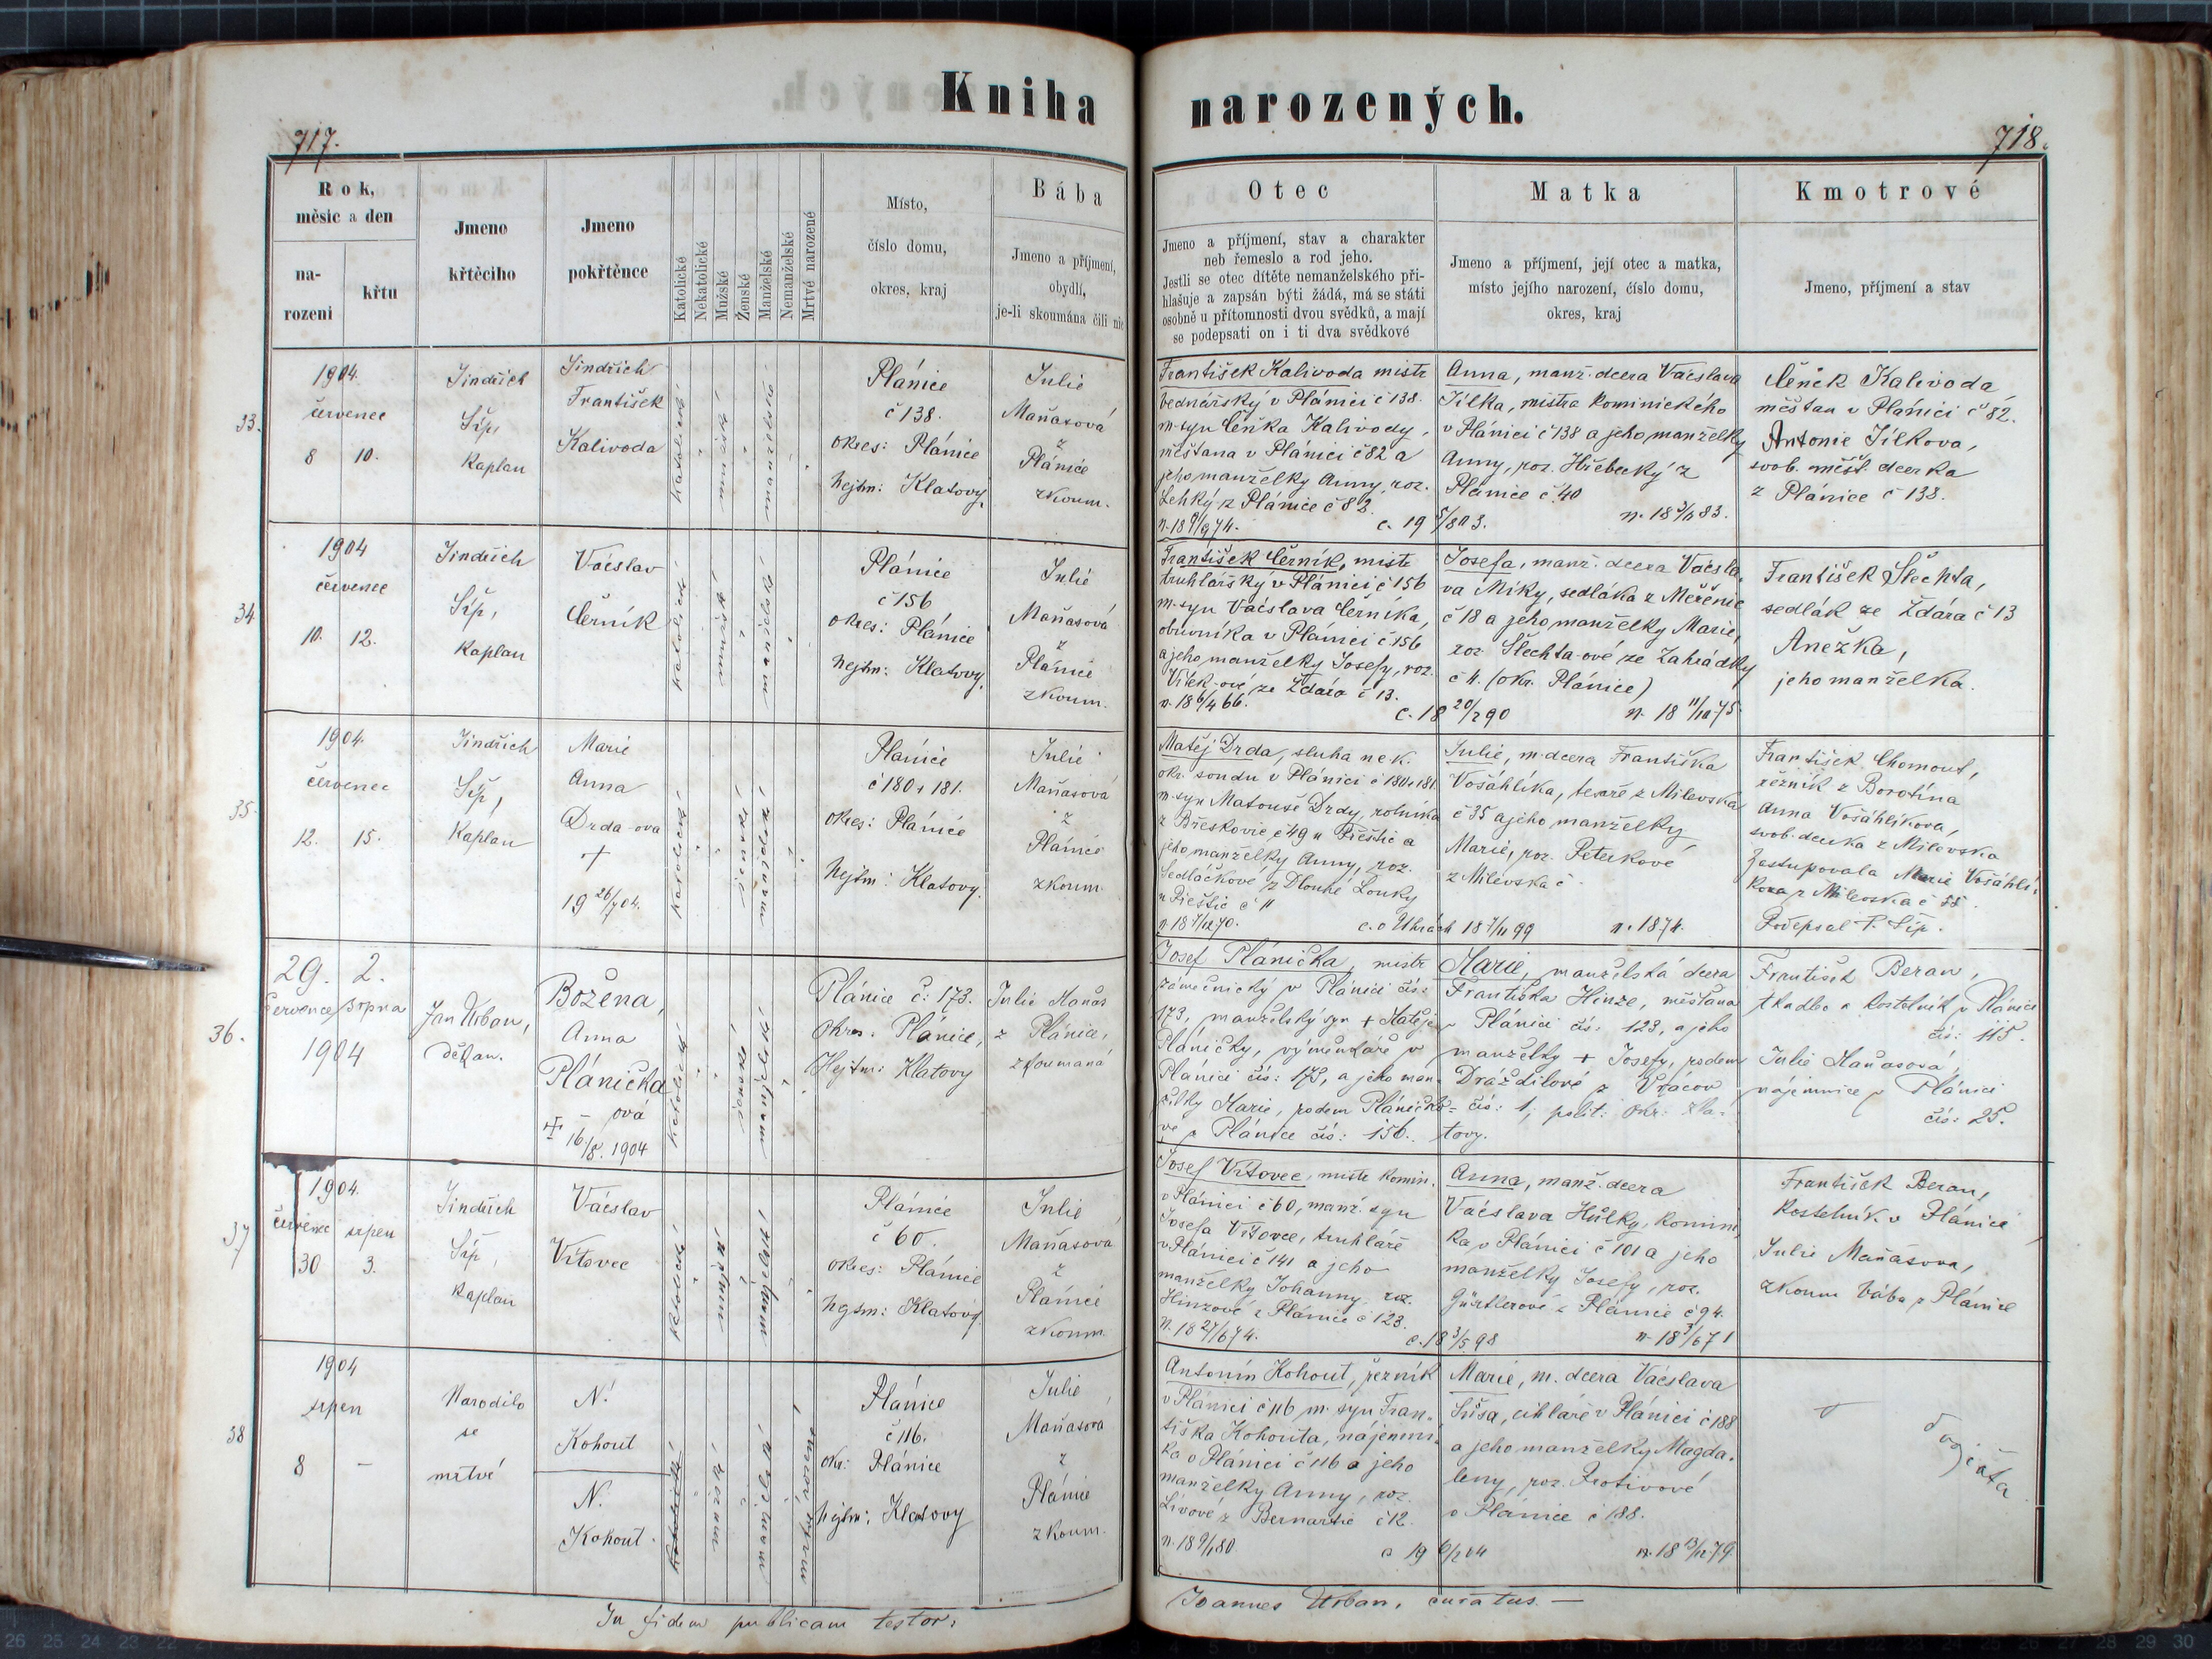 Kniha
narozených.
717.
718.
Rok,
měsíc a den
na-
rozeni
křtu
Jmeno
křtěcího
Jmeno
pokřtěnce
Katolické
Nekatolické
Mužské
Ženské
Manželské
Nemanželské
Mrtvé narozené
Místo,
číslo domu,
okres, kraj
Bába
Jmeno a příjmení,
obydlí,
je-li skoumána čili nic
Otec
Jmeno a příjmení, stav a charakter
neb řemeslo a rod jeho.
Jestli se otec dítěte nemanželského při-
hlašuje a zapsán býti žádá, má se státi
osobně u přítomnosti dvou svědků, a mají
se podepsati on i ti dva svědkové
Matka
Jmeno a příjmení, její otec a matka,
místo jejího narození, číslo domu,
okres, kraj
Kmotrové
Jmeno, příjmení a stav
33.
1904.
červenec
8 10.
Jindřich
Síp,
kaplan
Jindřich
František
Kalivoda
Plánice
č 138.
okres: Plánice
hejtm: Klatovy.
Julie
Maňasová
z
Plánice
zkoum.
František Kalivoda mistr
bednářský v Plánici č 138.
m. syn Čeňka Kalivody,
měšťana v Plánici č 82 a
jeho manželky Anny, roz.
Lehký z Plánice č 83.
Anna, manž. dcera Václava
Jílka, mistra kominického
v Plánici č 138 a jeho manželky
Anny, roz. Hřebecký z
Plánice č. 40
Čeněk Kalivoda
měšťan v Plánici č 82.
Antonie Jílkova,
svob. měšť. dcerka
z Plánice č 138.
34
1904
červenec
10. 12.
Jindřich
Síp,
kaplan
Václav
Černík
Plánice
č 156
okres: Plánice
hejtm: Klatovy.
Julie
Maňasová
z
Plánice
zkoum.
František Černík, mistr
truhlářský v Plánici č 156
m. syn Václava Černíka,
obuvníka v Plánici č. 156
a jeho manželky Josefy, roz.
Vlček-ové ze Ždára č 13.
n. 18 6/4 66.
c. 18 20/2 90
Josefa, manž. dcera Václa-
va Míky, sedláka z Měčenic
č 18 a jeho manželky Marie,
roz Šlechta-ové ze Zahrádky
č 4. (okr. Plánice)
n. 18 11/10 75.
František Šlechta,
sedlák ze Ždára č 13
Anežka,
jeho manželka.
35.
1904.
červenec
12. 15.
Jindřich
Síp,
kaplan
Marie
Anna
Drda-ova
+
19 26/7 04.
Plánice
č 180 + 181.
okres: Plánice
hejtm: Klatovy.
Julie
Maňasová
z
Plánice
zkoum.
Matěj Drda, sluha u c. k.
okr. soudu v Plánici č 180 + 181
m. syn Matouše Drdy, rolníka
z Břeskovic č 49 u Přeštic a
jeho manželky Anny, roz.
Sedláčkové z Dlouhé Louky
u Přeštic č 11
Julie, m. dcera Františka
Vošáhlíka, tesaře z Milevska
č 35 a jeho manželky
Marie, roz. Peterkové
z Milevska č.
n. 1874.
František Chomout,
řezník z Borotína
Anna Vošáhlíkova,
svob. dcerka z Milevska
Zastupovala Marie Vošáhlí-
kova z Milevska č 55.
Podepsal P. Síp.
36.
29. 2.
července srpna
1904
Jan Urban,
děkan.
Božena,
Anna
Plánička
ová
+ 16/8. 1904
Plánice č: 173.
Okres: Plánice,
Hejtm: Klatovy
Julie Maňas
z Plánice,
zkoumaná
Josef Plánička, mistr
zámečnický v Plánici čís:
173, manželský syn + Matěje
Pláničky, výměnkáře v
Plánici čís: 173, a jeho man-
želky Marie, rodem Pláničko-
vé z Plánice čís: 156.
Marie, manželská dcera
Františka Hinze, měšťana
v Plánici čís: 123, a jeho
manželky + Josefy, rodem
Dráždilové z Vrácov
čís: 1, polit: okr: Kla-
tovy.
František Beran,
tkadlec a kostelník v Plánici
čís: 115.
Julie Maňasová,
nájemnice v Plánici
čís: 25.
37
1904.
červenec srpen
30 3.
Jindřich
Síp,
kaplan
Václav
Vítovec
Plánice
č 60.
okres: Plánice
hejtm: Klatovy.
Julie
Maňasová
z
Plánice
zkoum.
Josef Vítovec, mistr komin.
v Plánici č 60, manž. syn
Josefa Vítovce, truhláře
v Plánici č 141 a jeho
manželky Johanny, roz.
Hinzové z Plánice č 123.
n. 18 27/6 74.
c. 18 3/5 98
Anna, manž. dcera
Václava Hůlky, komini-
ka v Plánici č 101 a jeho
manželky Josefy, roz.
Gürtlerové z Plánice č 94.
František Beran,
kostelník v Plánici
Julie Maňasova,
zkoum bába z Plánice
38
1904
srpen
8 –
Narodilo
se
mrtvé
N.
Kohout
N.
Kohout.
Plánice
č 116.
okr: Plánice
hejtm: Klatovy
Julie
Maňasová
z
Plánice
zkoum.
Antonín Kohout, řezník
v Plánici č 116 m. syn Fran-
tiška Kohouta, nájemní-
ka v Plánici č 116 a jeho
manželky Anny, roz.
Lívové z Bernartic č 12.
Marie, m. dcera Václava
Suša, cihláře v Plánici č 188
a jeho manželky Magda-
leny, roz. Protivové
v Plánice č 188.
n. 18 13/12 79.
dvojčata
In fidem publicam testor:
Joannes Urban, curatus. –